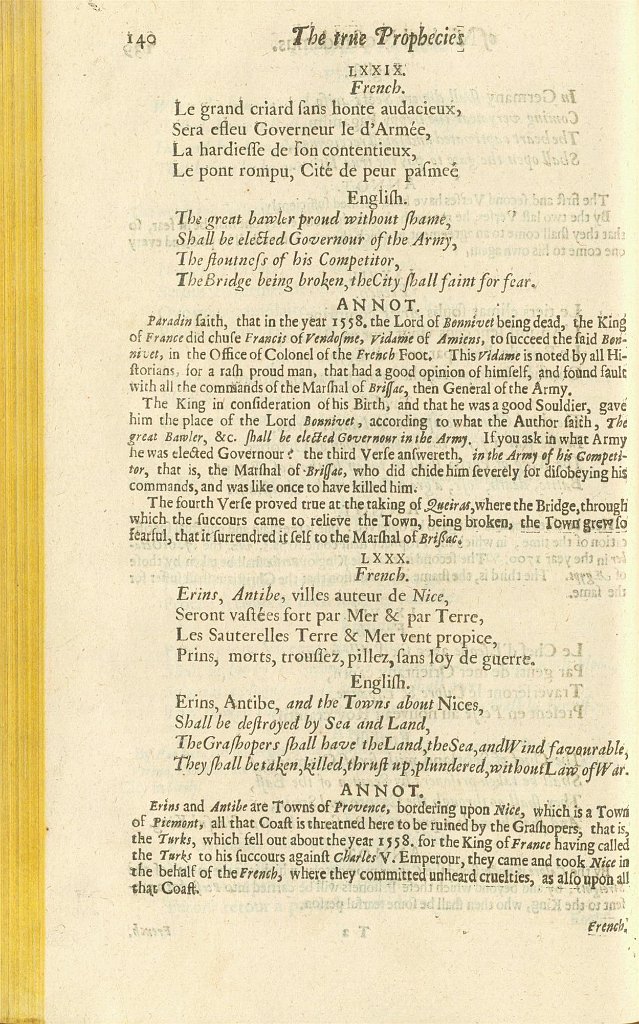 140 The true Prophecies
LXXIX.
French.
Le grand criard ſans honte audacieux,
Sera eſleu Governeur le d'Armée,
La hardieſſe de ſon contentieux,
Le pont rompu, Cité de peur paſmeé
Engliſh.
The great bawler proud without ſhame,
Shall be elected Governour of the Army,
The ſtoutneſs of his Competitor,
The Bridge being broken, the City ſhall faint for fear.
ANNOT.
Paradin ſaith, that in the year 1558. the Lord of Bonnivet being dead, the King
of France did chuſe Francis of Vendoſme, Vidame of Amiens, to ſucceed the ſaid Bon-
nivet, in the Office of Colonel of the French Foot. This Vidame is noted by all Hi-
ſtorians, for a raſh proud man, that had a good opinion of himſelf, and found fault
with all the commands of the Marſhal of Briſſac, then General of the Army.
The King in conſideration of his Birth, and that he was a good Souldier, gave
him the place of the Lord Bonnivet, according to what the Author ſaith, The
great Bawler, &c. ſhall be elected Governour in the Army. If you ask in what Army
he was elected Governour? the third Verſe anſwereth, in the Army of his Competi-
tor, that is, the Marſhal of Briſſac, who did chide him ſeverely for diſobeying his
commands, and was like once to have killed him.
The fourth Verſe proved true at the taking of Queiras, where the Bridge, through
which the ſuccours came to relieve the Town, being broken, the Town grew ſo
fearful, that it ſurrendred it ſelf to the Marſhal of Briſſac.
LXXX.
French.
Erins, Antibe, villes auteur de Nice,
Seront vaſtées fort par Mer & par Terre,
Les Sauterelles Terre & Mer vent propice,
Prins, morts, trouſſez, pillez, ſans loy de guerre.
Engliſh.
Erins, Antibe, and the Towns about Nices,
Shall be deſtroyed by Sea and Land,
The Graſhopers ſhall have the Land, the Sea, and Wind favourable,
They ſhall be taken, killed, thruſt up, plundered, without Law of War.
ANNOT.
Erins and Antibe are Towns of Provence, bordering upon Nice, which is a Town
of Piemont, all that Coaſt is threatned here to be ruined by the Graſhopers, that is,
the Turks, which fell out about the year 1558. for the King of France having called
the Turks to his ſuccours againſt Charles V. Emperour, they came and took Nice in
the behalf of the French, where they committed unheard cruelties, as alſo upon all
that Coaſt.
French.